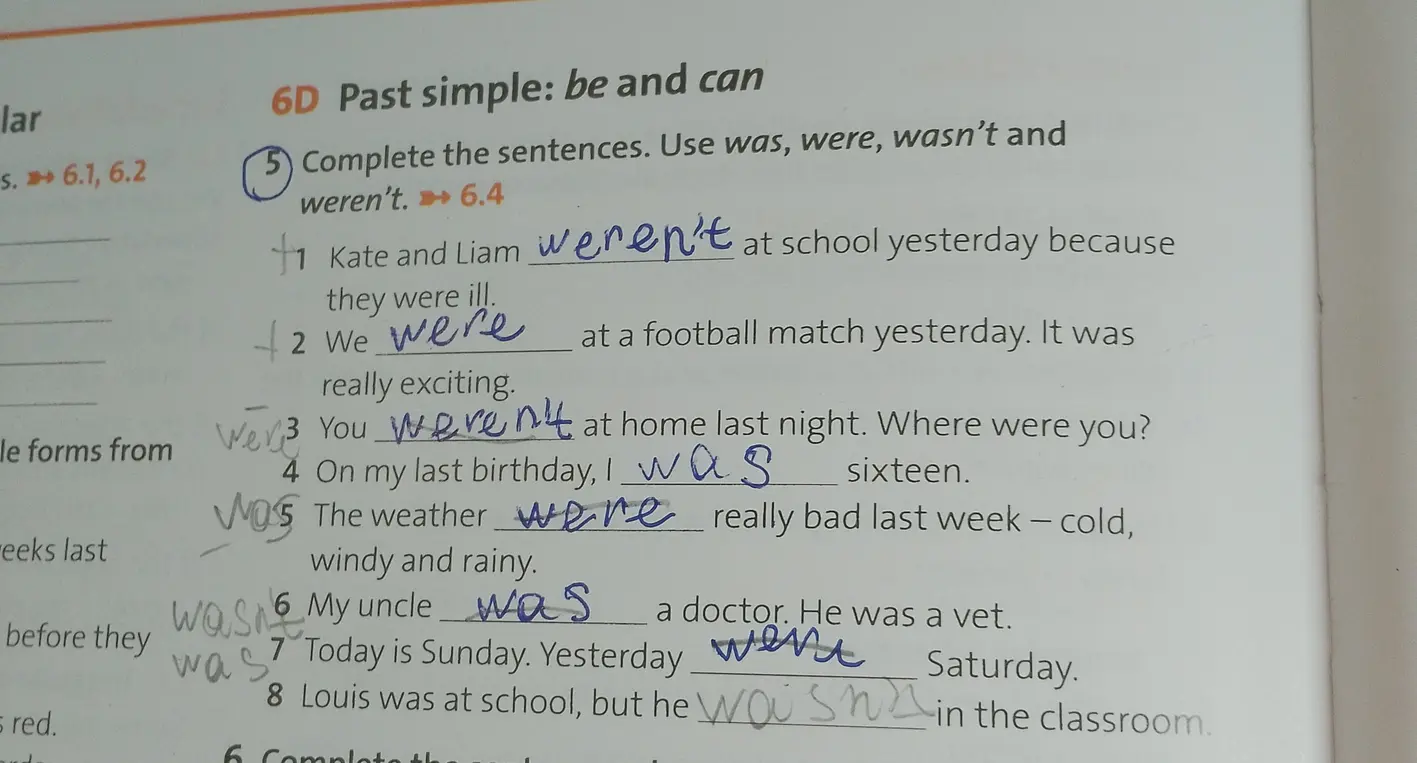 lar
s. ➳ 6.1, 6.2
le forms from
eeks last
before they
s red.
6D Past simple: be and can
5 Complete the sentences. Use was, were, wasn't and
weren't. ➳ 6.4
+ 1 Kate and Liam weren't at school yesterday because
they were ill.
+ 2 We were at a football match yesterday. It was
really exciting.
3 You weren't at home last night. Where were you?
4 On my last birthday, I was sixteen.
was 5 The weather were really bad last week – cold,
windy and rainy.
wasn't 6 My uncle was a doctor. He was a vet.
was 7 Today is Sunday. Yesterday Saturday.
8 Louis was at school, but he in the classroom.
6 Complete the